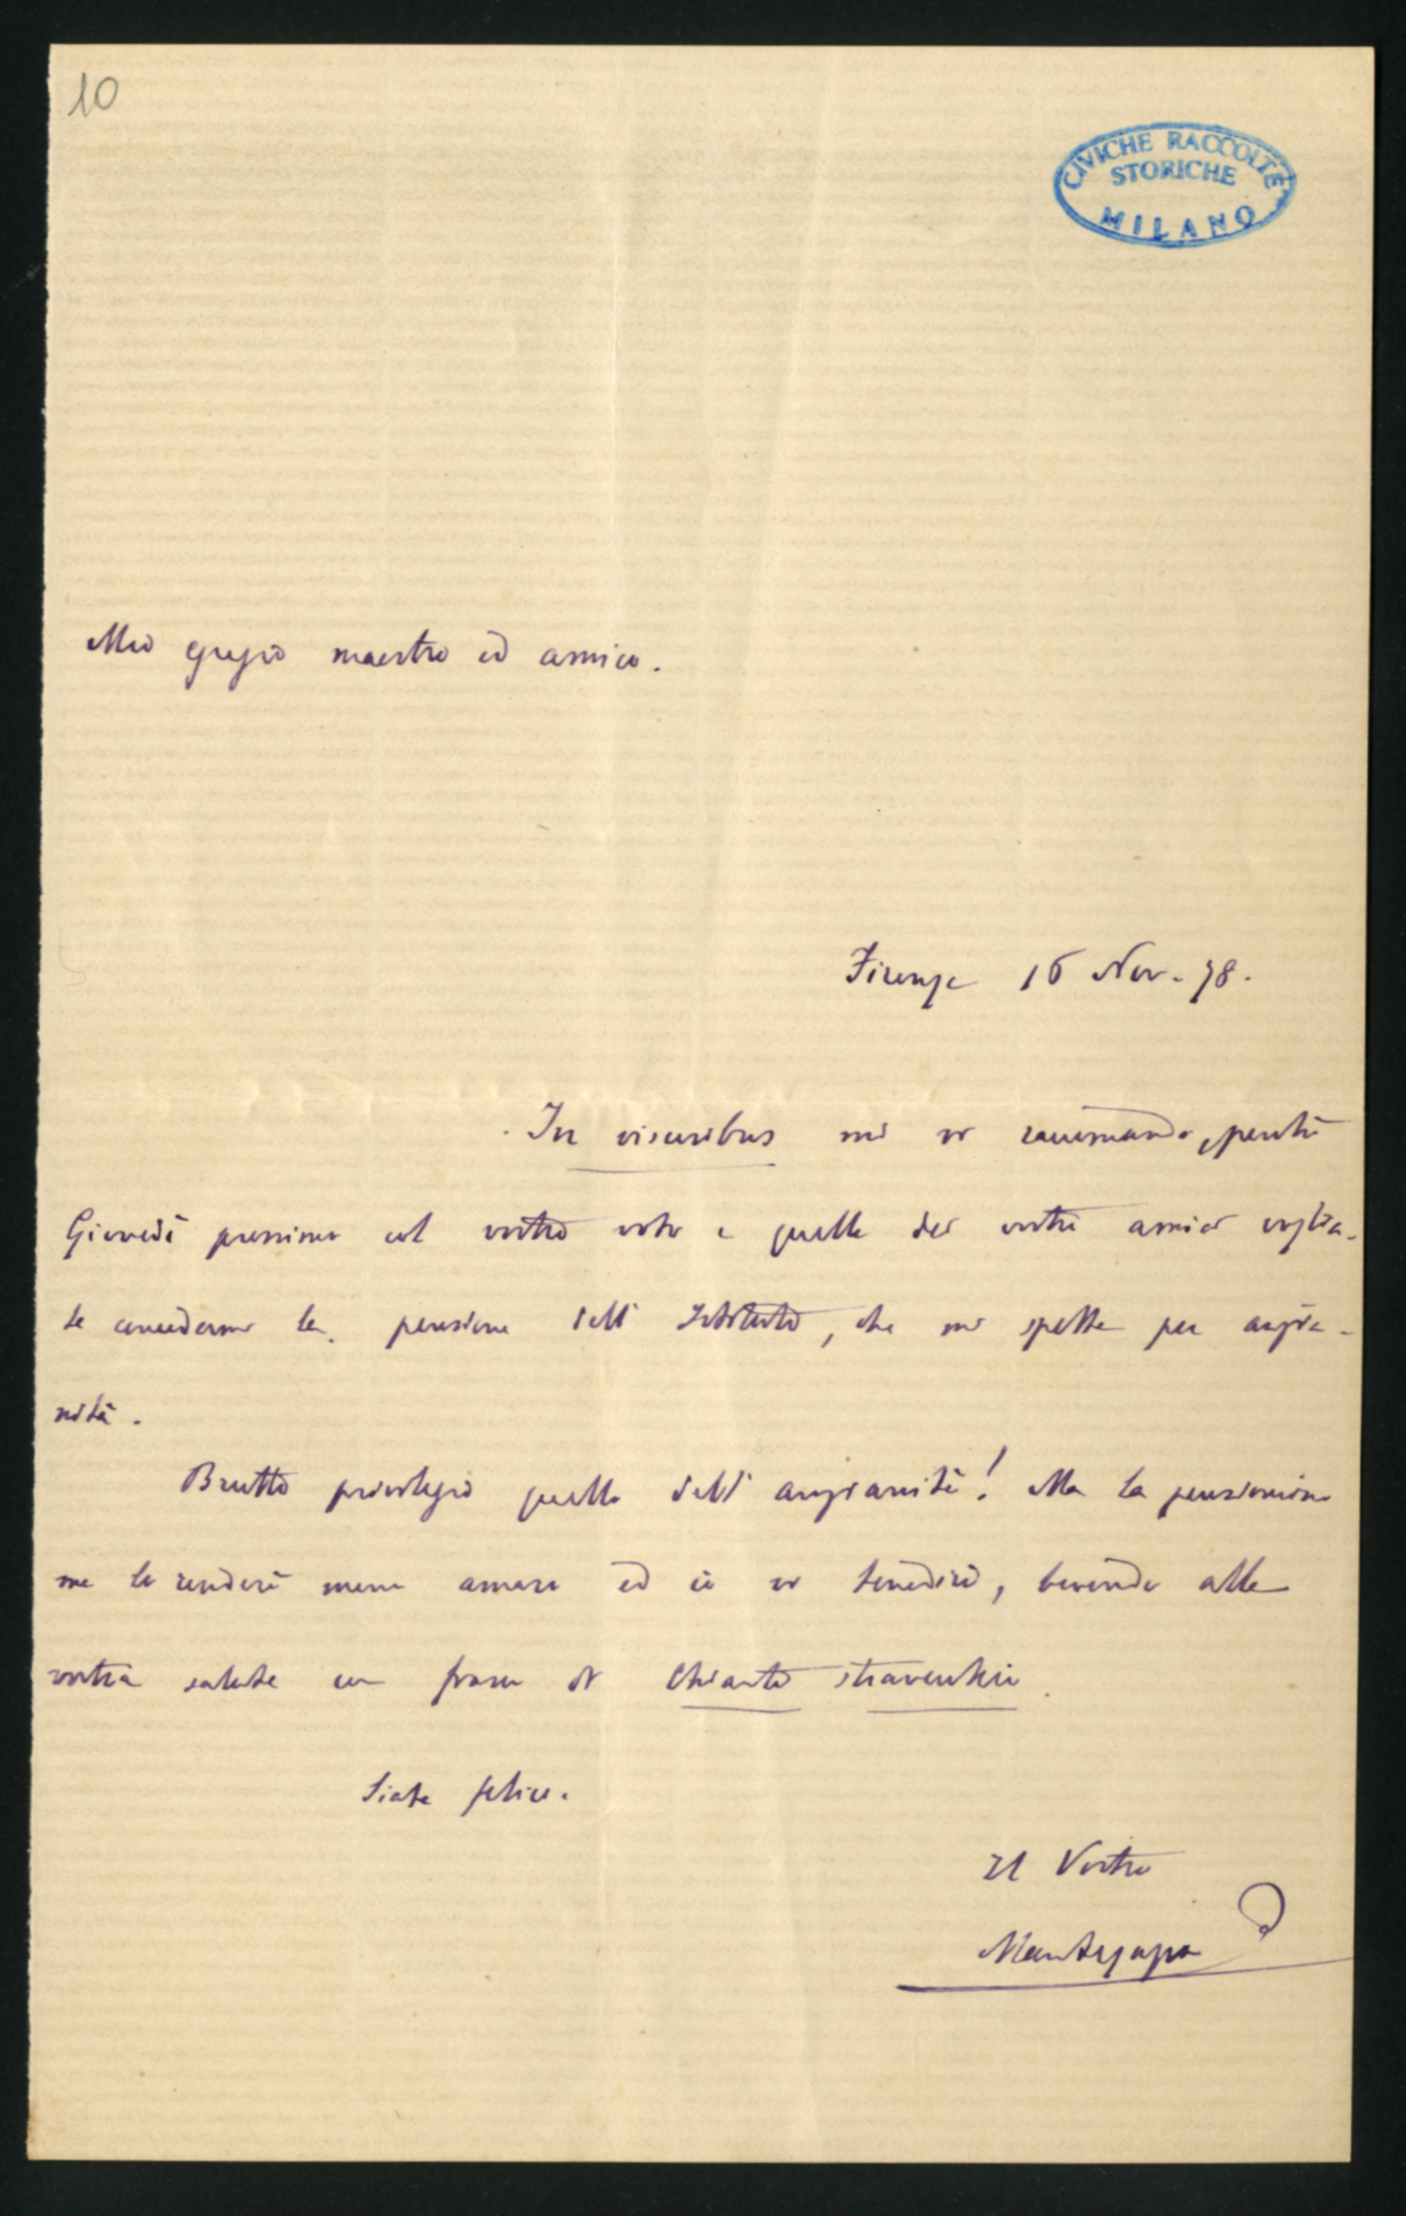 10
CIVICHE RACCOLTE
STORICHE
MILANO
Mio egregio maestro ed amico.
Firenze 16 Nov. 78.
In visceribus mi vi raccomando, perchè
Giovedì prossimo col vostro voto e quello dei vostri amici voglia-
te concedermi la pensione dell'Istituto, che mi spetta per anzia-
nità.
Brutto privilegio quello dell'anzianità! Ma la pensioncina
me lo renderà meno amaro ed io vi benedirò, bevendo alla
vostra salute un fiasco di Chianti stravecchio.
Siate felice.
Il Vostro
Mantegazza